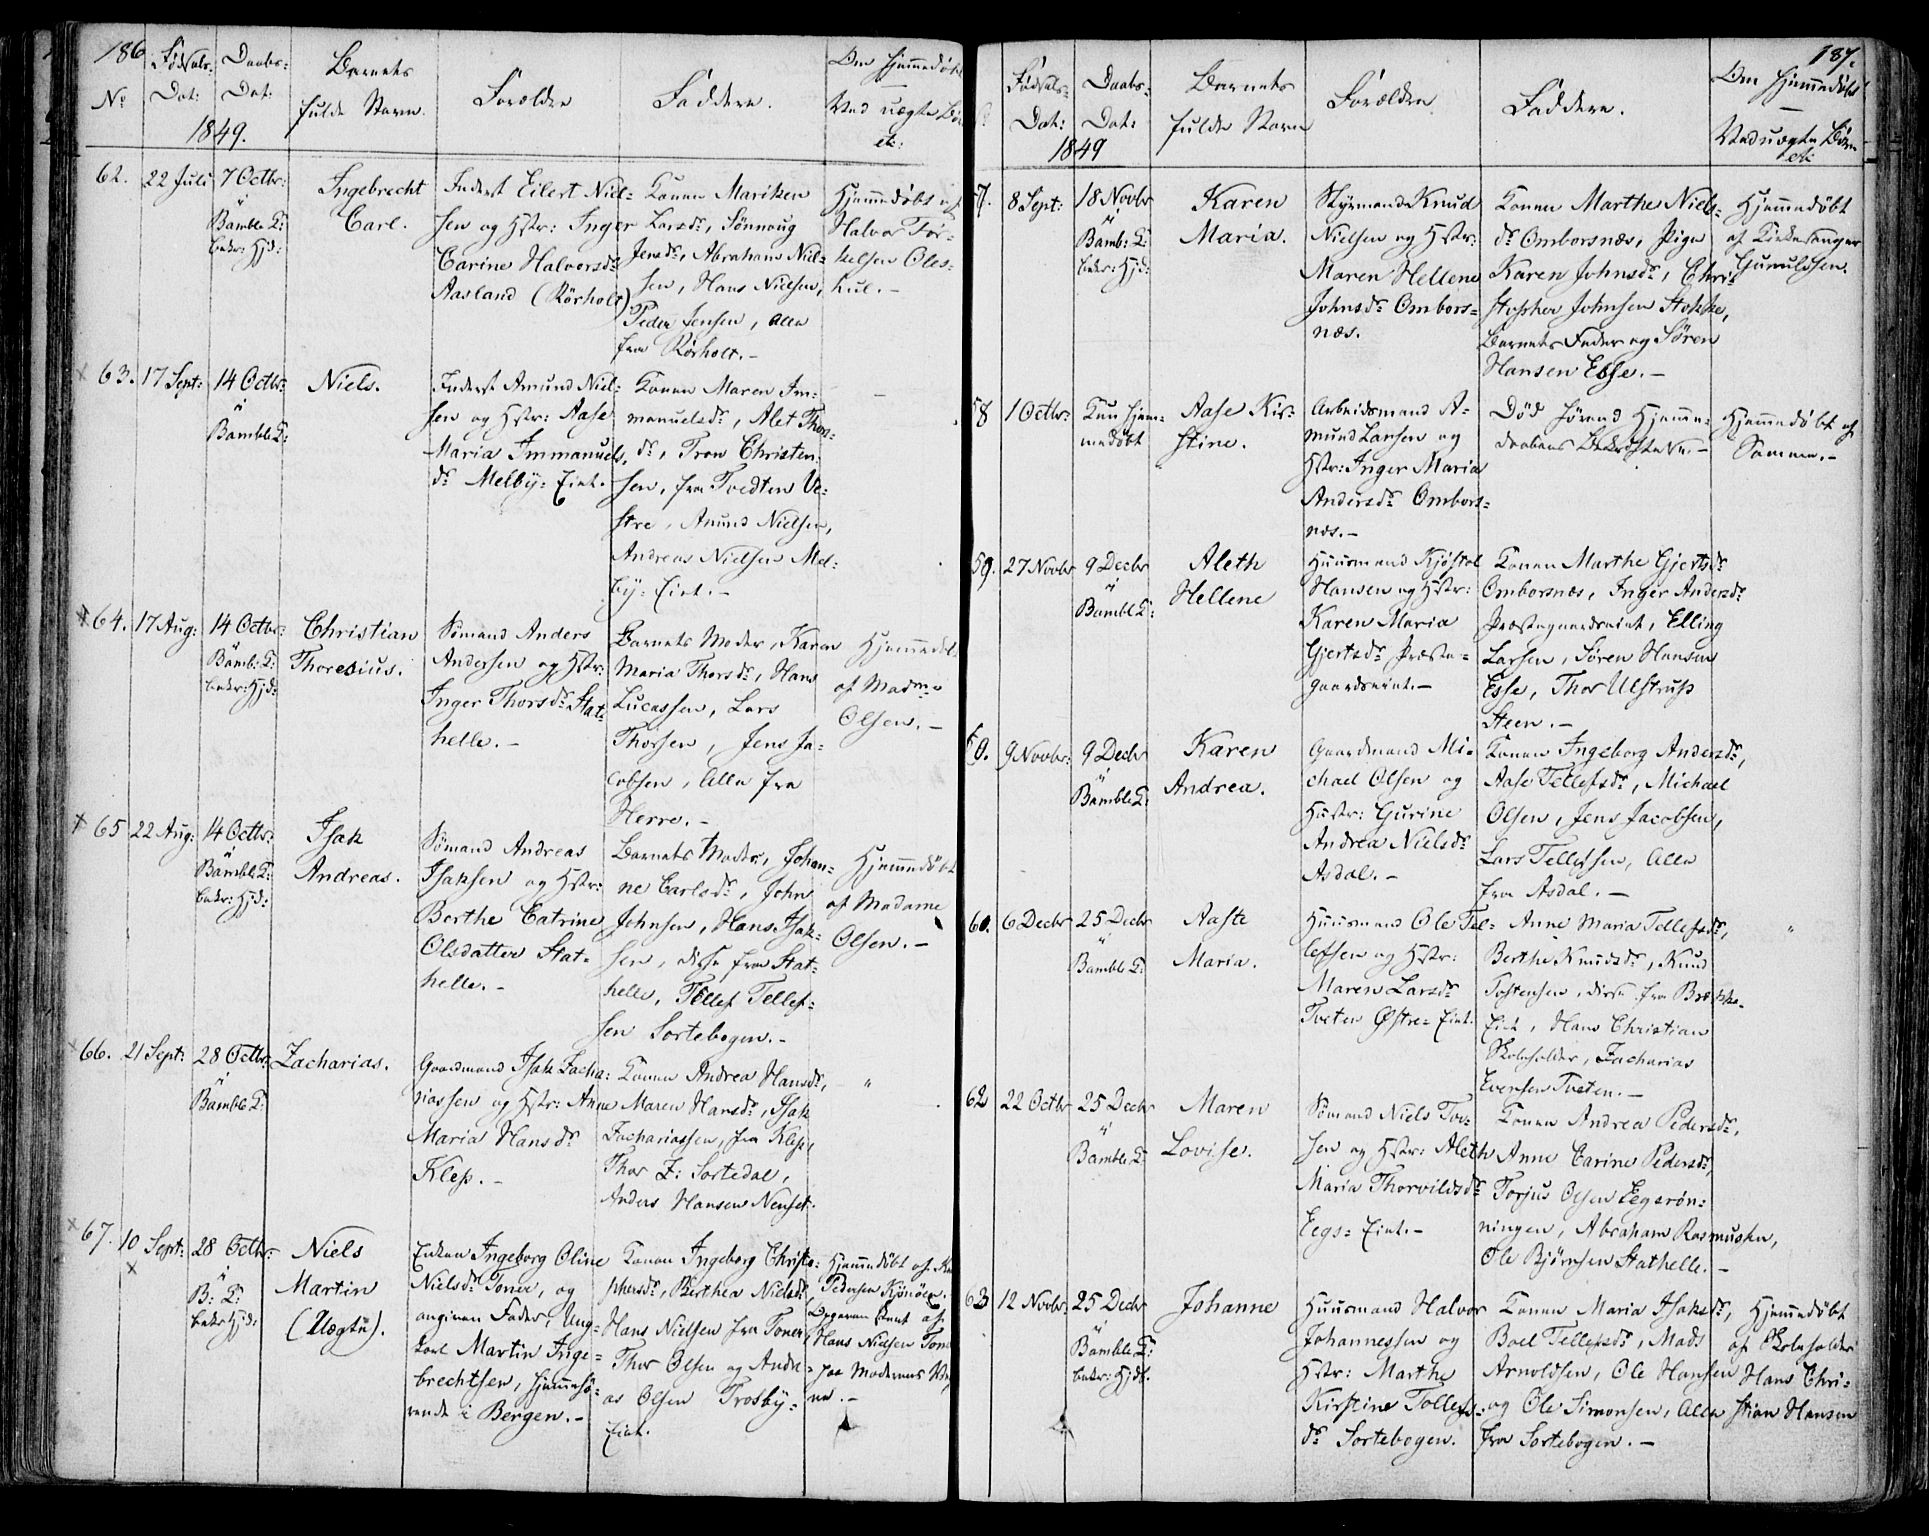 186
Fødsels-
Dat:
Daabs-
Dat:
Barnets
fulde Navn.
Forældre
Faddere.
Om Hjemmedøbt
—
Ved uægte Børn
etc:
No
1849.
62.
22 Juli
7 Octbr:
i
Bamble K:
bekr: Hjd:
Ingebrecht
Carl.
Inderst Eilert Niel-
sen og Hstr: Inger
Carine Halvorsdr
Aasland (Rörholt)
Konen Mariken
Larsdr, Sönnoug
Jensdr, Abrahams Niel-
sen, Hans Nielsen,
Peder Jensen, Alle
fra Rörholt.-
Hjemmedøbt af
Halvor Tor-
kelsen Oles-
hul.-
63.
17 Sept:
14 Octbr:
i
Bamble K:
Niels.
Inderst Amund Niel-
sen og Hstr: Aase
Maria Immanuels-
dr Melby-Eiet.
Konen Maren Im-
manuelsdr, Alet Thors-
dr, Tron Christen-
sen, fra Tvedten Ve-
stre, Amund Nielsen,
Andreas Nielsen Mel-
by-Eiet.-
64.
17 Aug:
14 Octbr:
i
Bamb: K:
bekr: Hjd:
Christian
Thoresius.
Sömand Anders
Andersen og Hstr:
Inger Thorsdr Stat-
helle.-
Barnets Moder, Karen
Maria Thorsdr, Hans
Lucassen, Lars
Thorsen, Jens Ja-
cobsen, Alle fra
Herre.-
Hjemmedøbt
af Madme
Olsen.-
65
22 Aug:
14 Octbr:
i
Bamble K:
bekr: Hjd:
Isak
Andreas.
Sömand Andreas
Isaksen og Hstr:
Berthe Catrine
Olsdatter Stat-
helle.-
Barnets Moder, Johan-
ne Carlsdr, John
Johnsen, Hans Isak-
sen, disse fra Stat-
helle, Tellef Tellef-
sen Sortebogen.-
Hjemmedøbt
af Madame
Olsen.-
66.
21 Sept:
28 Octbr:
i
Bamble K:
Zacharias.
Gaardmand Isak Zacha-
riassen og Hstr: Anne
Maria Hansdr
Klep.-
Konen Andrea Hansdr,
Maren Hansdr, Isak
Zachariassen, fra Klep,
Thor Z: Sortedal,
Anders Hansen Nenset.
"
67.
10 Sept:
28 Octbr:
i
B: K:
bekr Hjd:
Niels
Martin
(Uægte).
Enken Ingeborg Oline
Nielsdr Toner, og
angiven Fader, Ung-
karl Martin Inge-
brechtsen, hjemmehö-
rende i Bergen.-
Konen Ingeborg Christo-
phersdr, Berthea Nielsdr,
Hans Nielsen fra Toner
Thor Olsen og Andre-
as Olsen Trosby-
Eiet.
Hjemmedøbt af
Pedersen
af
Hans Nielsen
paa Moderens Veg-
ne.-
187.
Fødsels-
Dat:
Daabs-
Dat:
Barnets
fulde Navn
Forældre
Faddere.
Om Hjemmedøbt
—
Ved uægte Børn
etc:
1849
57.
8 Sept:
18 Novbr
i
Bamb: K:
bekr: Hjd:
Karen
Maria.
Styrmand Knud
Nielsen og Hstr:
Maren Hellene
Johnsdr Ombors-
næs.
Konen Marthe Niels-
dr Omborsnæs, Pige
Karen Johnsdr, Chri-
stopher Johnsen Stokke,
Barnets Fader og Sören
Hansen Esse.-
Hjemmedøbt
af Kirkesanger
Gunulsen.
58
1 Octbr:
Kun hjem-
medøbt
Aase Kir-
stine.
Arbeidsmand A-
mund Larsen og
Hstr: Inger Maria
Andersdr Ombors-
næs.-
Död förend Hjemme-
daabens Bekræftelse.-
Hjemmedøbt af
Samme.-
59.
27 Novbr
9 Decbr
i
Bamble K:
Aleth
Hellene
Huusmand Kjöstol
Hansen og Hstr:
Karen Maria
Gjertsdr Præste-
gaardseiet.-
Konen Marthe Gjertsdr
Omborsnæs, Inger Andersdr
Præstegaardseiet, Elling
Larsen, Sören Hansen
Esse, Thor Ulstrup
Steen.-
60.
9 Novbr:
9 Decbr
i
Bamble K:
Karen
Andrea.
Gaardmand Mi-
chael Olsen og
Hustr: Gurine
Andrea Nielsdr
Asdal.-
Konen Ingeborg Andersdr,
Aase Tellefsdr, Michael
Olsen, Jens Jacobsen,
Lars Tellefsen, Alle
fra Asdal.-
61.
6 Decbr
25 Decbr
i
Bamble K:
Aaste
Maria.
Huusmand Ole Tel-
lefsen og Hstr:
Maren Larsdr
Tveten Østre-Eiet.
Anne Maria Tellefsdr,
Berthe Knudsdr, Knud
Tostensen, disse fra Brække-
Eiet, Hans Christian
Skoleholder, Zacharias
Evensen Tveten.-
"
62
22 Octbr
25 Decbr
i
Bamble K:
Maren
Lovise.
Sömand Niels Tor-
sen og Hstr: Aleth
Maria Thorvildsdr
Eegs-Eiet.-
Konen Andrea Pedersdr,
Anne Carine Pedersdr,
Torjus Olsen Eegsrön-
ningen, Abraham Rasmussen,
Ole Bjørnsen Stathelle.-
63
12 Novbr.
25 Decbr
i
Bamble K:
bekr: Hjdt.
Johanne
Huusmand Halvor
Johannessen og
Hstr: Marthe
Kirstine Tollefs-
dr Sortebogen.
Konen Maria Isaksdr,
Boel Tellefsdr, Mads
Arnoldsen, Ole Hansen
og Ole Simonsen, Alle
fra Sortebogen.-
Hjemmedøbt
af Skoleholder
Hans Chri-
stian Hansen